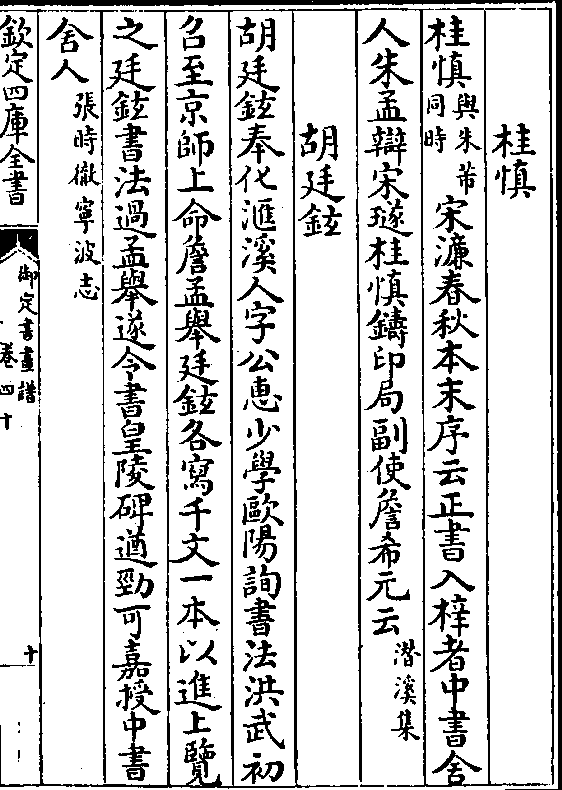 桂慎
桂慎與朱芾同時宋濂春秋本末序云正書入梓者中書舍
人朱孟辯宋璲桂慎鑄印局副使詹希元云潛溪集
胡廷鉉
胡廷鉉奉化滙溪人字公惠少學歐陽詢書法洪武初
召至京師上命詹孟舉廷鉉各寫千文一本以進上覽
之廷鉉書法過孟舉遂令書皇陵碑遒勁可嘉授中書
舍人張時徹寧波志
欽定四庫全書
御定書畫譜
卷四十
十